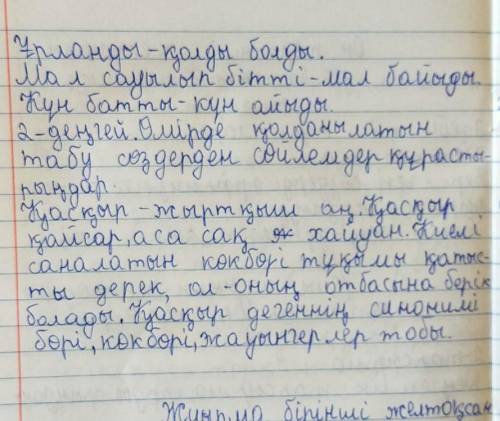 Ұрланды-қолды болды.
Мал сауылып бітті-мал байыды.
Күн батты-күн айыды.
2-деңгей. Өмірде қолданылатын
табу сөздерден сөйлемдер құрасты-
рыңдар.
Қасқыр - жыртқыш аң. Қасқыр
қайсар, аса сақ хайуан. Киелі
саналатын көкбөрі тұқымы қатыс-
ты дерек, ол-оның отбасына берік
болады. Қасқыр дегеннің синонимі
бөрі, көкбөрі, жауынгерлер тобы.
Жиырма бірінші желтоқсан